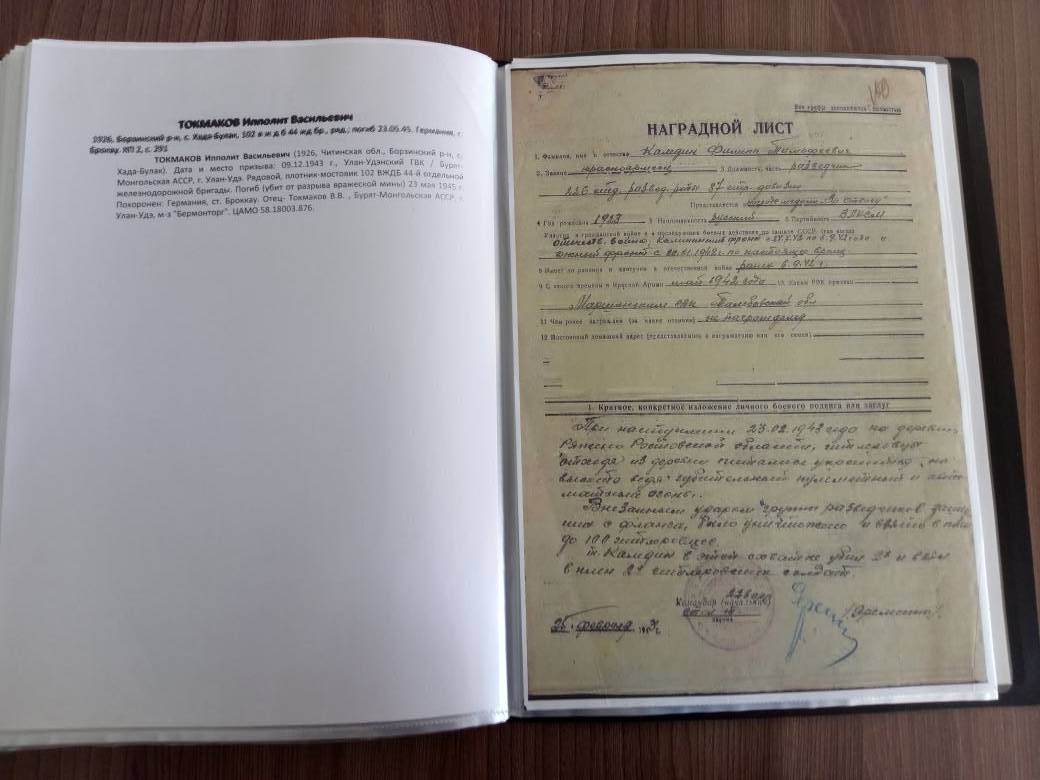 ТОКМАКОВ Ипполит Васильевич
1926, Борзинский р-н, с. Хада-Булак, 102 в ж д б 44 жд бр., ряд.; погиб 23.05.45. Германия, г.
Брокау. ЯП 2, с. 291
ТОКМАКОВ Ипполит Васильевич (1926, Читинская обл., Борзинский р-н, с.
Хада-Булак). Дата и место призыва: 09.12.1943 г., Улан-Удэнский ГВК / Бурят-
Монгольская АССР, г. Улан-Удэ. Рядовой, плотник-мостовик 102 ВЖДБ 44-й отдельной
железнодорожной бригады. Погиб (убит от разрыва вражеской мины) 23 мая 1945 г.
Похоронен: Германия, ст. Броккау. Отец- Токмаков В.В. , Бурят-Монгольская АССР, г.
Улан-Удэ, м-з "Бермонторг". ЦАМО 58.18003.876.
Все графы заполняются полностью
НАГРАДНОЙ ЛИСТ
1. Фамилия, имя и отчество Камдин Филипп Тимофеевич
2. Звание красноармеец 3. Должность, часть разведчик
Представляется
4 Год рождения 1923 5 Национальность русский 6 Партийность ВЛКСМ
7 Участие в гражданской войне и в последующих боевых действиях по защите СССР (где когда)
отечеств. война, Калининский фронт с по 6.9.42 года и
южный фронт с 1942 г. по настоящее время
8 Имеет ли ранения и контузии в отечественной войне ранен 6.9.42 г.
9 С какого времени в Красной Армии май 1942 года 10 Каким РВК призван
Тамбовской обл
11 Чем ранее награжден (за какие отличия) не награждался
12 Постоянный домашний адрес (представляемого к награждению или его семьи)
1. Краткое, конкретное изложение личного боевого подвига или заслуг
При наступлении 23.02.1943 года на деревню
Ростовской области, гитлеровцы
отходя из деревни пытались укрепиться на
высоте ведя губительный пулеметный и
огонь.
Внезапным ударом группы разведчиков,
с фланга, было уничтожено и взято в плен
до 100 гитлеровцев.
т. Камдин в этой схватке убил 2х и взял
в плен 2х гитлеровских солдат.
Командир (начальник)
25 февраля